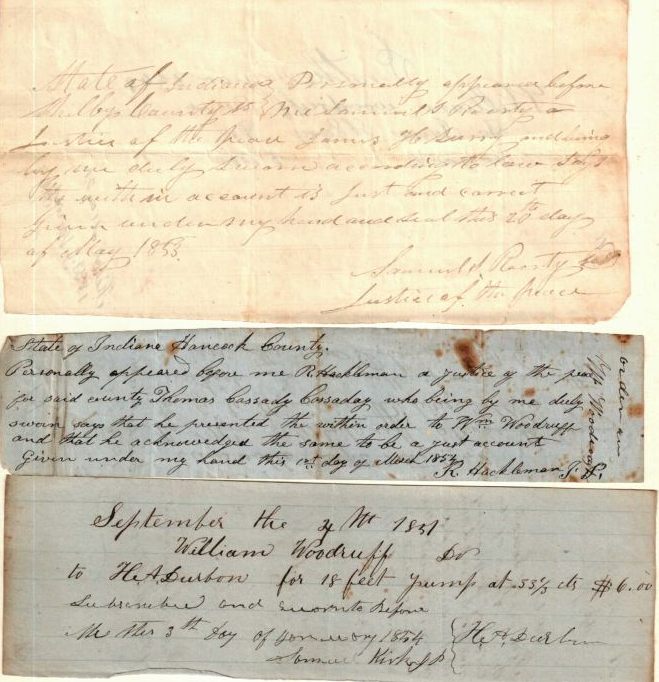 State of Indiana Personally appeared before
Shelby County SS me Samuel a
Justice of the peace James H who being
by me duly sworn according to law Says
the with in account is Just and correct
Given under my hand and seal this 20th day
of May 1853
Samuel
Justice of the peace
State of Indiana Hancock County.
Personally appeared before me R. Hackleman a justice of the peace
for said county Thomas Cassady Cassaday who being by me duly
sworn says that he presented the within order to Wm Woodruff
and that he acknowedged the same to be a just account
Given under my hand this 1st day of March 1854
R. Hackleman J. P.
order on
Woodruff
September the 4th 1851
William Woodruff Dr
to H. A. Durbon for 18 feet pump at 33⅓ cts $6.00
Subscribed and sworn to before
Me this 3th Day of January 1854
Samuel
H. A. Durbon